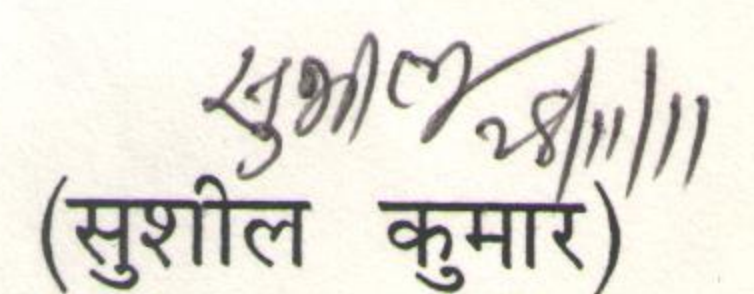 सुशील 28/11/11
(सुशील कुमार)